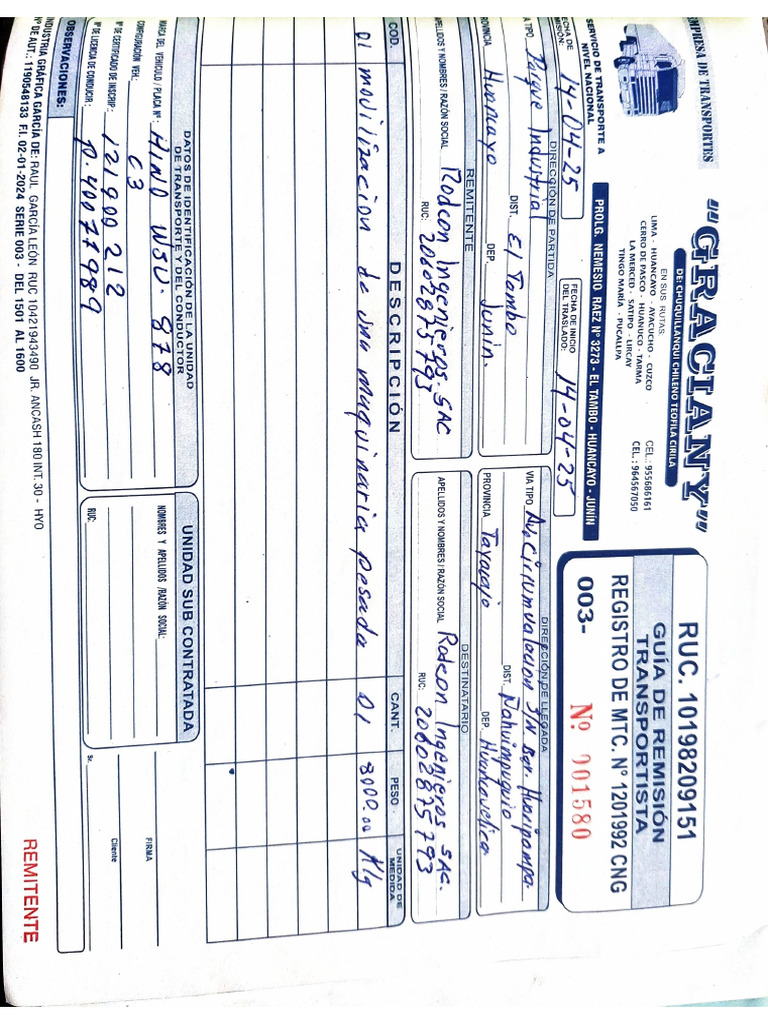 EMPRESA DE TRANSPORTES
"GRACIANY"
DE: CHUQUILLANQUI CHILENO TEOFILA CIRILA
SERVICIO DE TRANSPORTE A
NIVEL NACIONAL
EN SUS RUTAS:
LIMA - HUANCAYO - AYACUCHO - CUZCO
CERRO DE PASCO - HUANUCO - TARMA
LA MERCED - SATIPO - LIRCAY
TINGO MARÍA - PUCALLPA
CEL.: 955686161
CEL.: 964567050
PROLG. NEMESIO RAEZ Nº 3273 - EL TAMBO - HUANCAYO - JUNÍN
RUC. 10198209151
GUÍA DE REMISIÓN
TRANSPORTISTA
REGISTRO DE MTC. Nº 1201992 CNG
003- Nº 001580
FECHA DE
EMISIÓN: 14-04-25
FECHA DE INICIO
DEL TRASLADO: 14-04-25
DIRECCIÓN DE PARTIDA
VIA TIPO Parque Industrial
DIST. El Tambo
PROVINCIA Huancayo DEP. Junin.
DIRECCIÓN DE LLEGADA
VIA TIPO Av. Circunvalacion S/N Bar. Huaripampa
DIST. Ñahuimpuquio
PROVINCIA Tayacaja DEP. Huancavelica
REMITENTE
APELLIDOS Y NOMBRES / RAZÓN SOCIAL Rodcon Ingenieros. SAC
RUC: 20602875793
DESTINATARIO
APELLIDOS Y NOMBRES / RAZÓN SOCIAL Rodcon Ingenieros SAC.
RUC: 20602875793
COD. DESCRIPCIÓN CANT. PESO UNIDAD DE MEDIDA
01 movilizacion de una maquinaria pesada 01 8000.00 Klg
DATOS DE IDENTIFICACIÓN DE LA UNIDAD
DE TRANSPORTE Y DEL CONDUCTOR
MARCA DEL VEHICULO / PLACA Nº: HINO W5U. 878
CONFIGURACIÓN VEH.: C3
Nº DE CERTIFICADO DE INSCRIP.: 121900212
Nº DE LICENCIA DE CONDUCIR: P. 40077989
UNIDAD SUB CONTRATADA
NOMBRES Y APELLIDOS /RAZÓN SOCIAL:
RUC:
FIRMA
Cliente
Sr.
OBSERVACIONES:
INDUSTRIA GRÁFICA GARCÍA DE: RAUL GARCÍA LEÓN RUC 10421943490 JR. ANCASH 180 INT. 30 - HYO
Nº DE AUT.: 1190548133 F.I. 02-01-2024 SERIE 003 - DEL 1501 AL 1600
REMITENTE